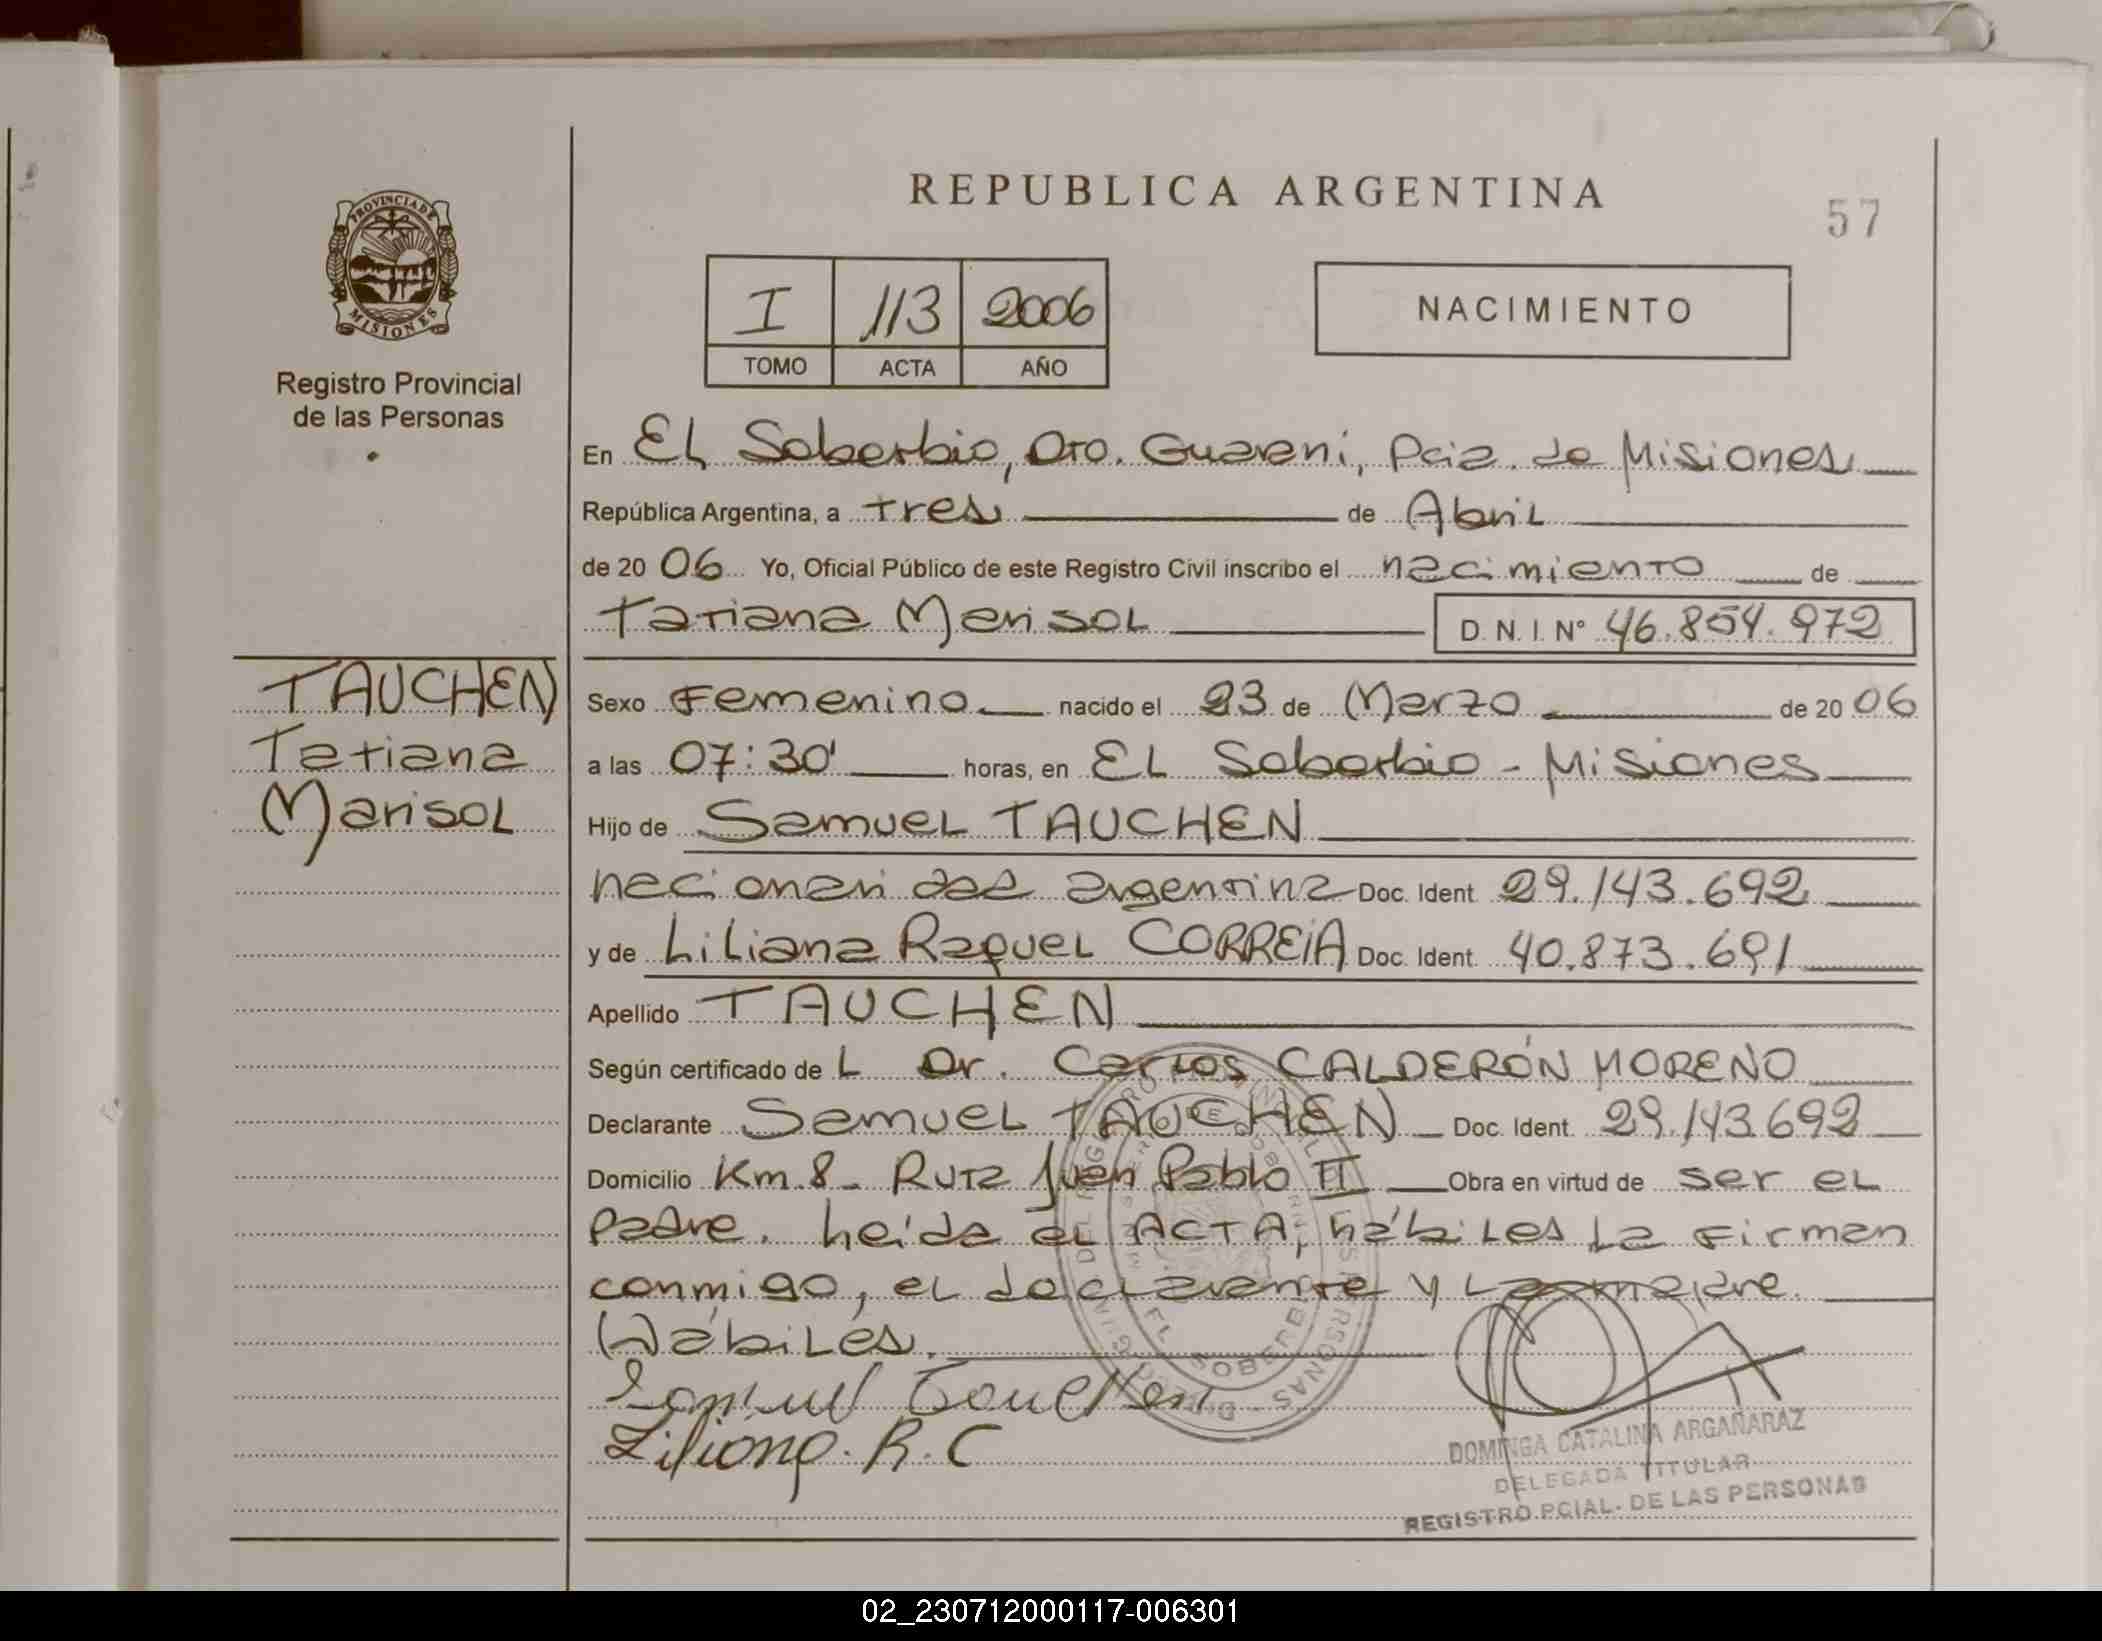 REPUBLICA ARGENTINA
57
PROVINCIA DE MISIONES
Registro Provincial
de las Personas
I 113 2006
TOMO ACTA AÑO
NACIMIENTO
En El Soberbio, Dto. Guarani, Pcia. de Misiones
República Argentina, a tres de Abril
de 2006 Yo, Oficial Público de este Registro Civil inscribo el nacimiento de
Tatiana Marisol D. N. I. N° 46.854.972
TAUCHEN
Tatiana
Marisol
Sexo Femenino nacido el 23 de Marzo de 2006
a las 07:30' horas, en El Soberbio - Misiones
Hijo de Samuel TAUCHEN
nacionalidad argentina Doc. Ident. 29.143.692
y de Liliana Raquel CORREIA Doc. Ident. 40.873.691
Apellido TAUCHEN
Según certificado de L Dr. Carlos CALDERÓN MORENO
Declarante Samuel TAUCHEN Doc. Ident. 29.143.692
Domicilio Km. 8 - Ruta Juan Pablo II Obra en virtud de ser el
Padre. Leida el ACTA, hábiles la firman
conmigo, el declarante y la madre.
Hábiles.
Samuel Tauchen
Liliana. R. C
DOMINGA CATALINA ARGAÑARAZ
DELEGADA TITULAR
REGISTRO PCIAL. DE LAS PERSONAS
02_230712000117-006301